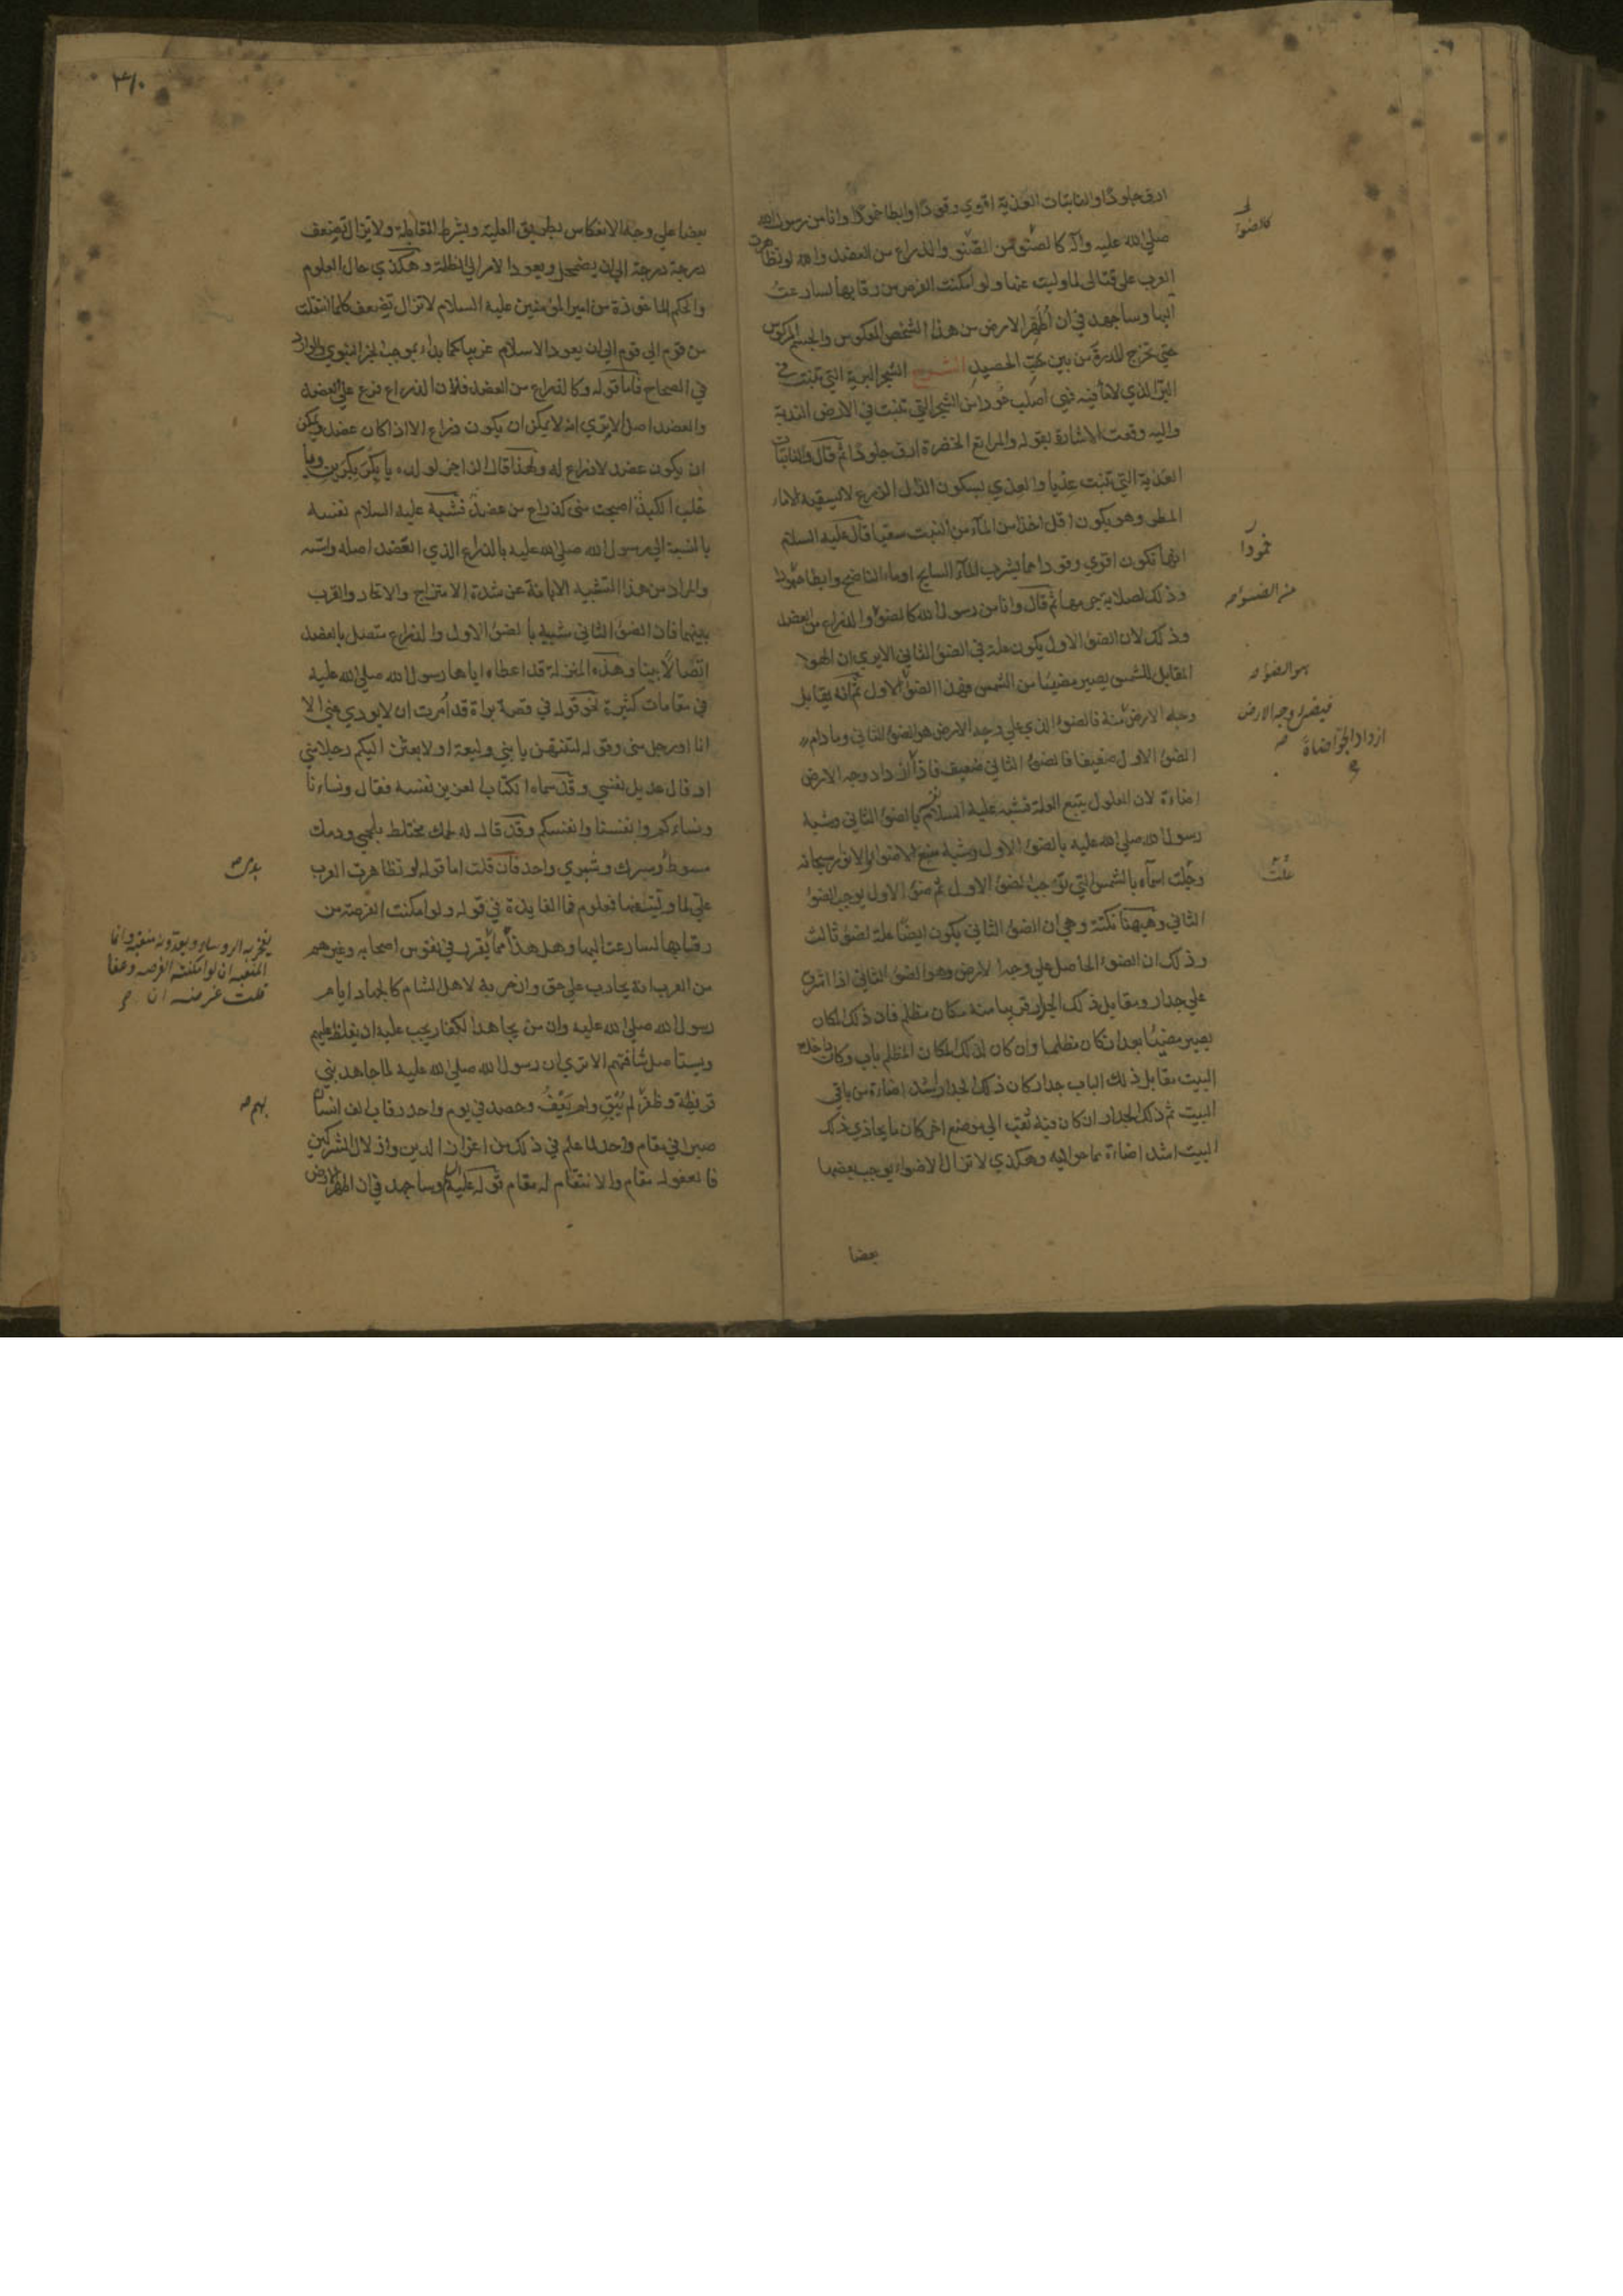 ارق جلودا والنابتات العذية اقوي وقودا وابطا خمودا وانا من رسول الله
صلي الله عليه وآله كالضوء من الضوء والذراع من العضد والله لو تظاهرت
العرب علي قتالي لما وليت عنها ولو امكنت الفرص من رقابها لسارعت
اليها وساجهد في ان اطهر الارض من هذا الشخص المعكوس والجسم المركوس
حتي تخرج المدرة من بين حب الحصيد الشرح الشجرة البرية التي تنبت في
البر الذي لا ماء فيه فهي اصلب عودا من الشجرة التي تنبت في الارض الندية
واليه وقعت الاشارة بقوله والمراتع الخضرة ارق جلودا ثم قال والنابتات
العذية التي تنبت عذيا والعذي بسكون الذال الزرع لا يسقيه الا ماء
المطر وهو يكون اقل اخذا من الماء من النبت سقيا قال عليه السلام
انها تكون اقوي وقودا مما يشرب الماء السايح او ماء الناضح وابطا خمودا
وذلك لصلابة جرمها ثم قال وانا من رسول الله كالضوء والذراع من العضد
وذلك لان الضوء الاول يكون علة في الضوء الثاني الا يري ان الهواء
المقابل للشمس يصير مضيئا من الشمس فهذا الضوء الاول ثم انه يقابل
وجه الارض منه فالضوء الذي علي وجه الارض هو الضوء الثاني وما دام
الضوء الاول ضعيفا فالضوء الثاني ضعيف فاذا ازداد وجه الارض
اضاءة لان المعلول يتبع العلة فشبه عليه السلام نفسه بالضوء الثاني وشبه
رسول الله صلي الله عليه بالضوء الاول وشبه منبع الاضواء والانوار سبحانه
وجلت اسماؤه بالشمس التي توجب الضوء الاول ثم الضوء الاول يوجب الضوء
الثاني وههنا نكتة وهي ان الضوء الثاني يكون ايضا علة لضوء ثالث
وذلك ان الضوء الحاصل علي وجه الارض وهو الضوء الثاني اذا اشرق
علي جدار ومقابل ذلك الجدار قريبا منه مكان مظلم فان ذلك المكان
يصير مضيئا بعد ان كان مظلما وان كان لذلك المكان المظلم باب وكان داخل
البيت مقابل ذلك الباب جدار كان ذلك الجدار اشد اضاءة من باقي
البيت ثم ذلك الجدار ان كان فيه ثقب الي موضع اخر كان ما يحاذي ذلك
البيت اشد اضاءة مما حواليه وهكذي لا تزال الاضواء يوجب بعضها
بعضا
كالضوء
خمودا
من الضوء
هو الضوء
فيضئ وجه الارض
ازداد الجو اضاءة
علت
بعضا علي وجه الانعكاس بطريق العلية وبشرط المقابلة ولا يزال تضعف
درجة درجة الي ان يضمحل ويعود الامر الي الظلمة وهكذي حال العلوم
والحكم الماخوذة من امير المؤمنين عليه السلام لا تزال تضعف كلما انتقلت
من قوم الي قوم الي ان يعود الاسلام غريبا كما بدا بموجب الخبر النبوي الوارد
في الصحاح فاما قوله وكالذراع من العضد فلان الذراع فرع علي العضد
والعضد اصل الا تري انه لا يمكن ان يكون ذراع الا اذا كان عضد ويمكن
ان يكون عضد لا ذراع له ولهذا قال الراجز لولده يا بكر بكرين ويا
خلب الكبد اصبحت مني كذراع من عضد فشبه عليه السلام نفسه
بالنسبة الي رسول الله صلي الله عليه بالذراع الذي العضد اصله واسه
والمراد من هذا التشبيه الابانة عن شدة الامتزاج والاتحاد والقرب
بينهما فان الضوء الثاني شبيه بالضوء الاول والذراع متصل بالعضد
اتصالا بينا وهذه المنزلة قد اعطاه اياها رسول الله صلي الله عليه
في مقامات كثيرة نحو قوله في قصة براة قد امرت ان لا يودي عني الا
انا او رجل مني وقوله لتنتهن يا بني وليعة او لابعثن اليكم رجلا مني
او قال عديل نفسي وقد سماه الكتاب العزيز نفسه فقال ونساءنا
ونساءكم وانفسنا وانفسكم وقد قال له لحمك مختلط بلحمي ودمك
مسوط وسرك وشبري واحد فان قلت اما قوله لو تظاهرت العرب
علي لما وليت عنها فعلوم فما الفايدة في قوله ولو امكنت الفرصة من
رقابها لسارعت اليها وهل هذا مما يقرب في نفوس اصحابه وغيرهم
من العرب انه يحارب علي حق وان حربه لاهل الشام كالجهاد ايام
رسول الله صلي الله عليه وان من يجاهد الكفار يجب عليه ان يغلظ عليهم
ويستاصل شافتهم الا تري ان رسول الله صلي الله عليه لما جاهد بني
قريظة وظفر لم يبق ولم يعف وحصد في يوم واحد رقاب الف انسان
صبرا في مقام واحد لما علم في ذلك من اعزاز الدين واذلال المشركين
فالعفو له مقام والانتقام له مقام قوله عليه السلام وساجهد في ان اطهر الارض
بدمي
يفخر به الروساء ويعدونه منقبة وانما
المنقبة ان لو امكنته الفرصة وعفا
قلت غرضه ان
بهم